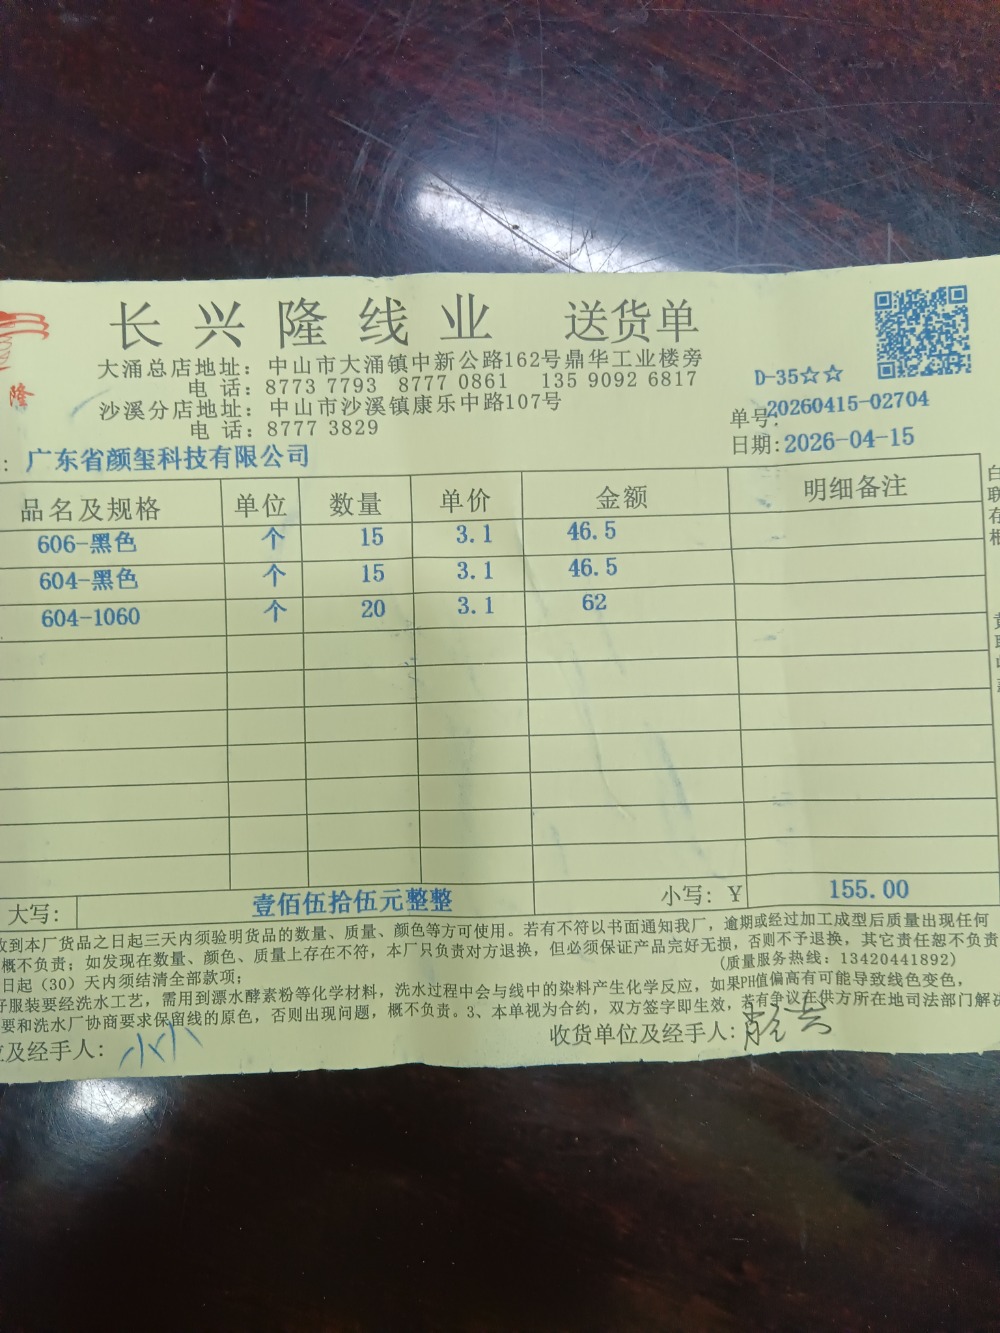 长兴隆线业 送货单
隆
大涌总店地址：中山市大涌镇中新公路162号鼎华工业楼旁
电 话：8773 7793 8777 0861 135 9092 6817
沙溪分店地址：中山市沙溪镇康乐中路107号
电 话：8777 3829
D-35☆☆
单号:20260415-02704
日期:2026-04-15
：广东省颜玺科技有限公司
品名及规格 单位 数量 单价 金额 明细备注
606-黑色 个 15 3.1 46.5
604-黑色 个 15 3.1 46.5
604-1060 个 20 3.1 62
大写：壹佰伍拾伍元整整 小写：¥ 155.00
收到本厂货品之日起三天内须验明货品的数量、质量、颜色等方可使用。若有不符以书面通知我厂，逾期或经过加工成型后质量出现任何
概不负责；如发现在数量、颜色、质量上存在不符，本厂只负责对方退换，但必须保证产品完好无损，否则不予退换，其它责任恕不负责
日起（30）天内须结清全部款项； (质量服务热线：13420441892)
好服装要经洗水工艺，需用到漂水酵素粉等化学材料，洗水过程中会与线中的染料产生化学反应，如果PH值偏高有可能导致线色变色，
要和洗水厂协商要求保留线的原色，否则出现问题，概不负责。3、本单视为合约，双方签字即生效，若有争议在供方所在地司法部门解决
位及经手人：小小 收货单位及经手人：
白
联
存
根